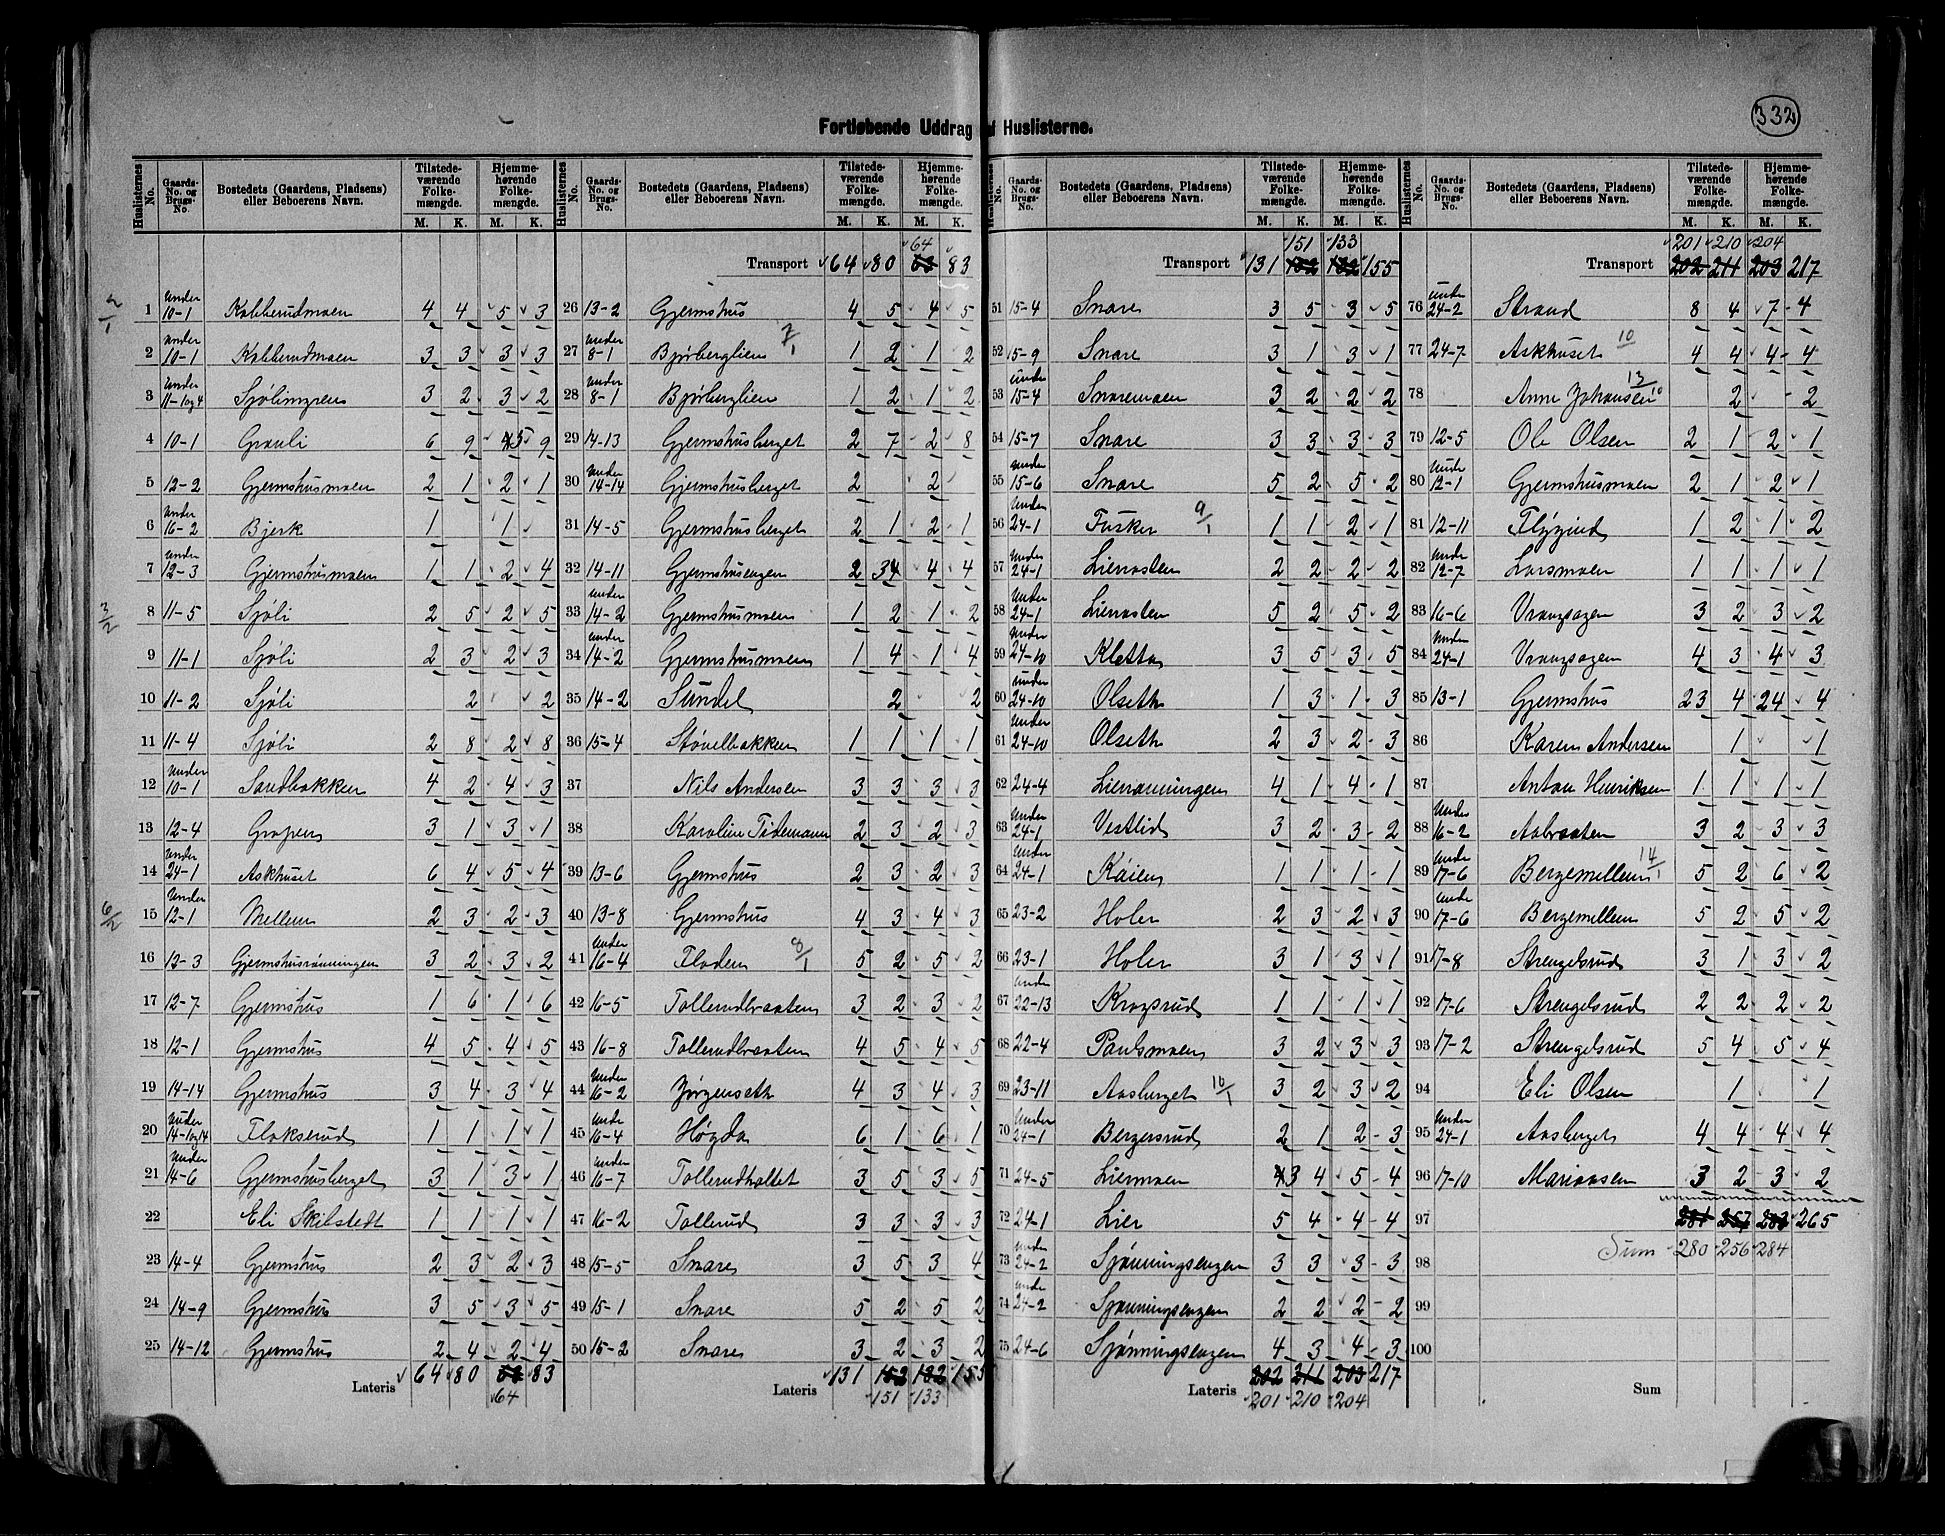 332
Fortløbende Uddrag af Huslisterne.
Huslisternes No. | Gaards-No. og Brugs-No. | Bostedets (Gaardens, Pladsens) eller Beboerens Navn. | Tilstedeværende Folkemængde. M. K. | Hjemmehørende Folkemængde. M. K.
1 under 10-1 Kabberudmoen 4 4 5 3
2 under 10-1 Kabberudmoen 3 3 3 3
3 under 11-1og4 Sjølimyren 3 2 3 2
4 10-1 Grauli 6 9 5 9
5 12-2 Gjermshusmoen 2 1 2 1
6 under 16-2 Bjerk 1 1
7 under 12-3 Gjermshusmoen 1 1 2 4
8 11-5 Sjøli 2 5 2 5
9 11-1 Sjøli 2 3 2 3
10 11-2 Sjøli 2 2
11 11-4 Sjøli 2 8 2 8
12 under 10-1 Sandbakken 4 2 4 3
13 12-4 Grapen 3 1 3 1
14 under 24-1 Askhuset 6 4 5 4
15 under 12-1 Mellem 2 3 2 3
16 12-3 Gjermshusrønningen 3 2 3 2
17 12-7 Gjermshus 1 6 1 6
18 12-1 Gjermshus 4 5 4 5
19 14-14 Gjermshus 3 4 3 4
20 under 14-1og14 Flakserud 1 1 1 1
21 under 14-6 Gjermshusberget 3 1 3 1
22 Eli Skilstedt 1 1 1 1
23 14-4 Gjermshus 2 3 2 3
24 14-9 Gjermshus 3 5 3 5
25 14-12 Gjermshus 2 4 2 4
Lateris 64 80 83
64
64
Transport 64 80 63 83
26 13-2 Gjermshus 4 5 4 5
27 under 8-1 Bjørberglien 7/1 1 2 1 2
28 under 8-1 Bjørberglien 1 2 1 2
29 14-13 Gjermshusberget 2 7 2 8
30 under 14-14 Gjermshusberget 2 2
31 14-5 Gjermshusberget 2 1 2 1
32 14-11 Gjermshusengen 2 34 4 4
33 under 14-2 Gjermshusmoen 1 2 1 2
34 under 14-2 Gjermshusmoen 1 4 1 4
35 14-2 Sundet 2 2
36 15-4 Støvelbakken 1 1 1 1
37 Nils Andersen 3 3 3 3
38 Karoline Tidemann 2 3 2 3
39 13-6 Gjermshus 2 3 2 3
40 13-8 Gjermshus 4 3 4 3
41 under 16-4 Floden 8/1 5 2 5 2
42 16-5 Tollerudbraaten 3 2 3 2
43 16-8 Tollerudbraaten 4 5 4 5
44 under 16-2 Jørgenseth 4 3 4 3
45 under 16-4 Høgda 6 1 6 1
46 under 16-7 Tollerudholtet 3 5 3 5
47 16-2 Tollerud 3 3 3 3
48 15-5 Snare 3 5 3 4
49 15-1 Snare 5 2 5 2
50 15-2 Snare 3 2 3 2
Lateris 131 152 132 155
151 133
151 133
Transport 131 152 132 155
51 15-4 Snare 3 5 3 5
52 15-9 Snare 3 1 3 1
53 under 15-4 Snaremoen 3 2 2 2
54 15-7 Snare 3 3 3 3
55 under 15-6 Snare 5 2 5 2
56 under 24-1 Fusker 9/1 1 1 2 1
57 under 24-1 Lienosten 2 2 2 2
58 under 24-1 Lienosten 5 2 5 2
59 under 24-10 Kletta 3 5 3 5
60 under 24-10 Olseth 1 3 1 3
61 under 24-10 Olseth 2 3 2 3
62 24-4 Lierønningen 4 1 4 1
63 under 24-1 Vestlid 3 2 3 2
64 under 24-1 Kaien 1 1 1 1
65 23-2 Holer 2 3 2 3
66 23-1 Holer 3 1 3 1
67 under 22-13 Krogsrud 1 1 1 1
68 22-4 Paulsmoen 3 2 3 3
69 23-11 Aasberget 10/1 3 2 3 2
70 under 24-1 Bergersrud 2 1 2 3
71 24-5 Liermoen 3 4 5 4
72 24-1 Lier 5 4 4 4
73 under 24-2 Sjønningsengen 3 3 3 3
74 under 24-2 Sjønningsengen 2 2 2 2
75 24-6 Sjønningsengen 4 3 4 3
Lateris 202 211 203 217
201 210 204
201 210 204
Transport 202 211 203 217
76 under 24-2 Strand 8 4 7 4
77 24-7 Askhuset 10 4 4 4 4
78 Anne Johansen 13/10 2 2
79 12-5 Ole Olsen 2 1 2 1
80 under 12-1 Gjermshusmoen 2 1 2 1
81 12-11 Flygind 1 2 1 2
82 under 12-7 Larsmoen 1 1 1 1
83 16-6 Vrangsagen 3 2 3 2
84 under 24-1 Vrangsagen 4 3 4 3
85 13-1 Gjermshus 23 4 24 4
86 Karen Andersen 1 1
87 Anton Henriksen 1 1 1 1
88 under 16-2 Aabraaten 3 2 3 3
89 under 17-6 Bergemellem 14/1 5 2 6 2
90 under 17-6 Bergemellem 5 2 5 2
91 17-8 Strengelsrud 3 1 3 2
92 17-6 Strengelsrud 2 2 2 2
93 17-2 Strengelsrud 5 4 5 4
94 Eli Olsen 1 1
95 under 24-1 Aasberget 4 4 4 4
96 17-10 Mariaasen 3 2 3 2
97 281 257 283 265
98 Sum 280 256 284
99
100
Sum
2/1
3/2
6/2